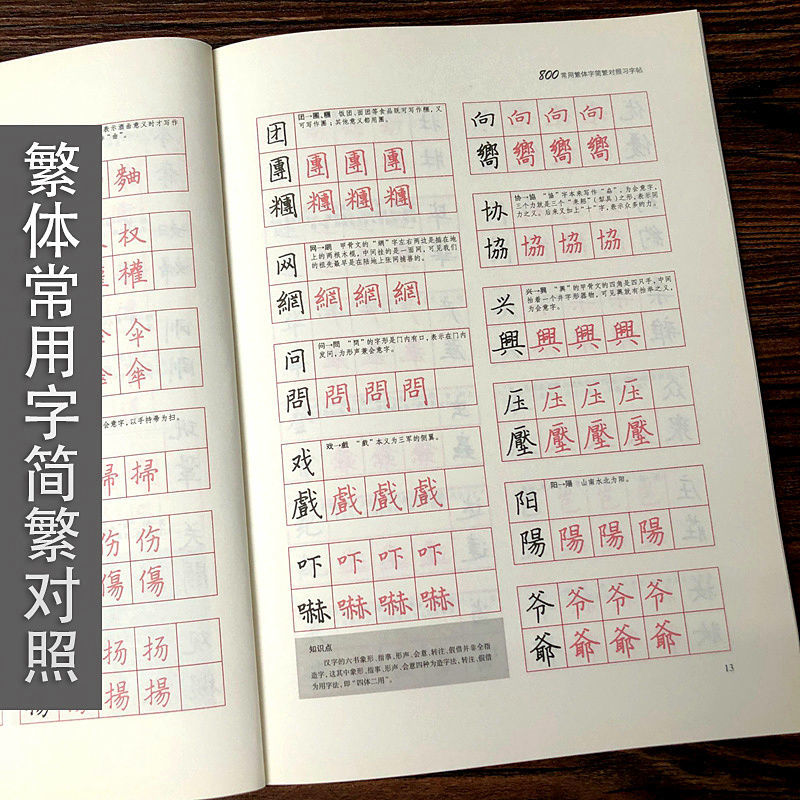 繁体常用字简繁对照
表示酒曲意义时才写作
“曲”。
麯
权
權
伞
傘
会意字，以手持帚为扫。
掃
伤 伤
傷 傷
扬 扬
揚 揚
800常用繁体字简繁对照习字帖
团
团→團、糰 饭团、面团等食品既可写作糰，又
可写作團；其他意义都用團。
團 團 團 團
糰 糰 糰 糰
网
网→網 甲骨文的“網”字左右两边是插在地
上的两根木棍，中间挂的是一面网，可见我们
的祖先最早是在陆地上张网捕兽的。
網 網 網 網
问
问→問 “問”的字形是门内有口，表示在门内
发问，为形声兼会意字。
問 問 問 問
戏
戏→戲 “戲”本义为三军的侧翼。
戲 戲 戲 戲
吓 吓 吓 吓
嚇 嚇 嚇 嚇
知识点
汉字的六书象形、指事、形声、会意、转注、假借并非全指
造字，这其中象形、指事、形声、会意四种为造字法，转注、假借
为用字法，即“四体二用”。
向 向 向 向
嚮 嚮 嚮 嚮
协
协→協 “協”字本来写作“劦”，为会意字，
三个力就是三个“耒耜”（犁具）之形，表示同
力之义。后来又加上“十”字，表示众多的力。
協 協 協 協
兴
兴→興 “興”的甲骨文的四角是四只手，中间
抬着一个井字形器物，可见興就有抬举之义，
为会意字。
興 興 興 興
压 压 压 压
壓 壓 壓 壓
阳
阳→陽 山南水北为阳。
陽 陽 陽 陽
爷 爷 爷 爷
爺 爺 爺 爺
13